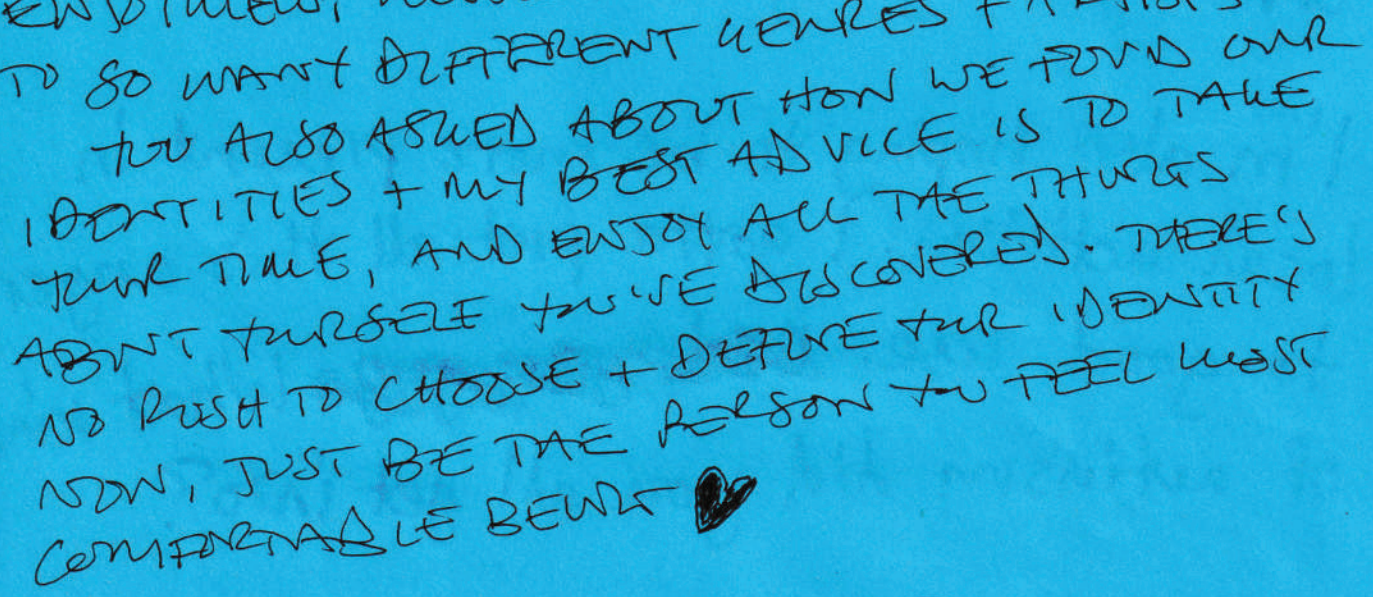 ENJOYMENT
TO SO MANY DIFFERENT GENRES +
YOU ALSO ASKED ABOUT HOW WE FOUND OUR
IDENTITIES + MY BEST ADVICE IS TO TAKE
YOUR TIME, AND ENJOY ALL THE THINGS
ABOUT YOURSELF YOU'VE DISCOVERED. THERE'S
NO RUSH TO CHOOSE + DEFINE YOUR IDENTITY
NOW, JUST BE THE PERSON YOU FEEL MOST
COMFORTABLE BEING